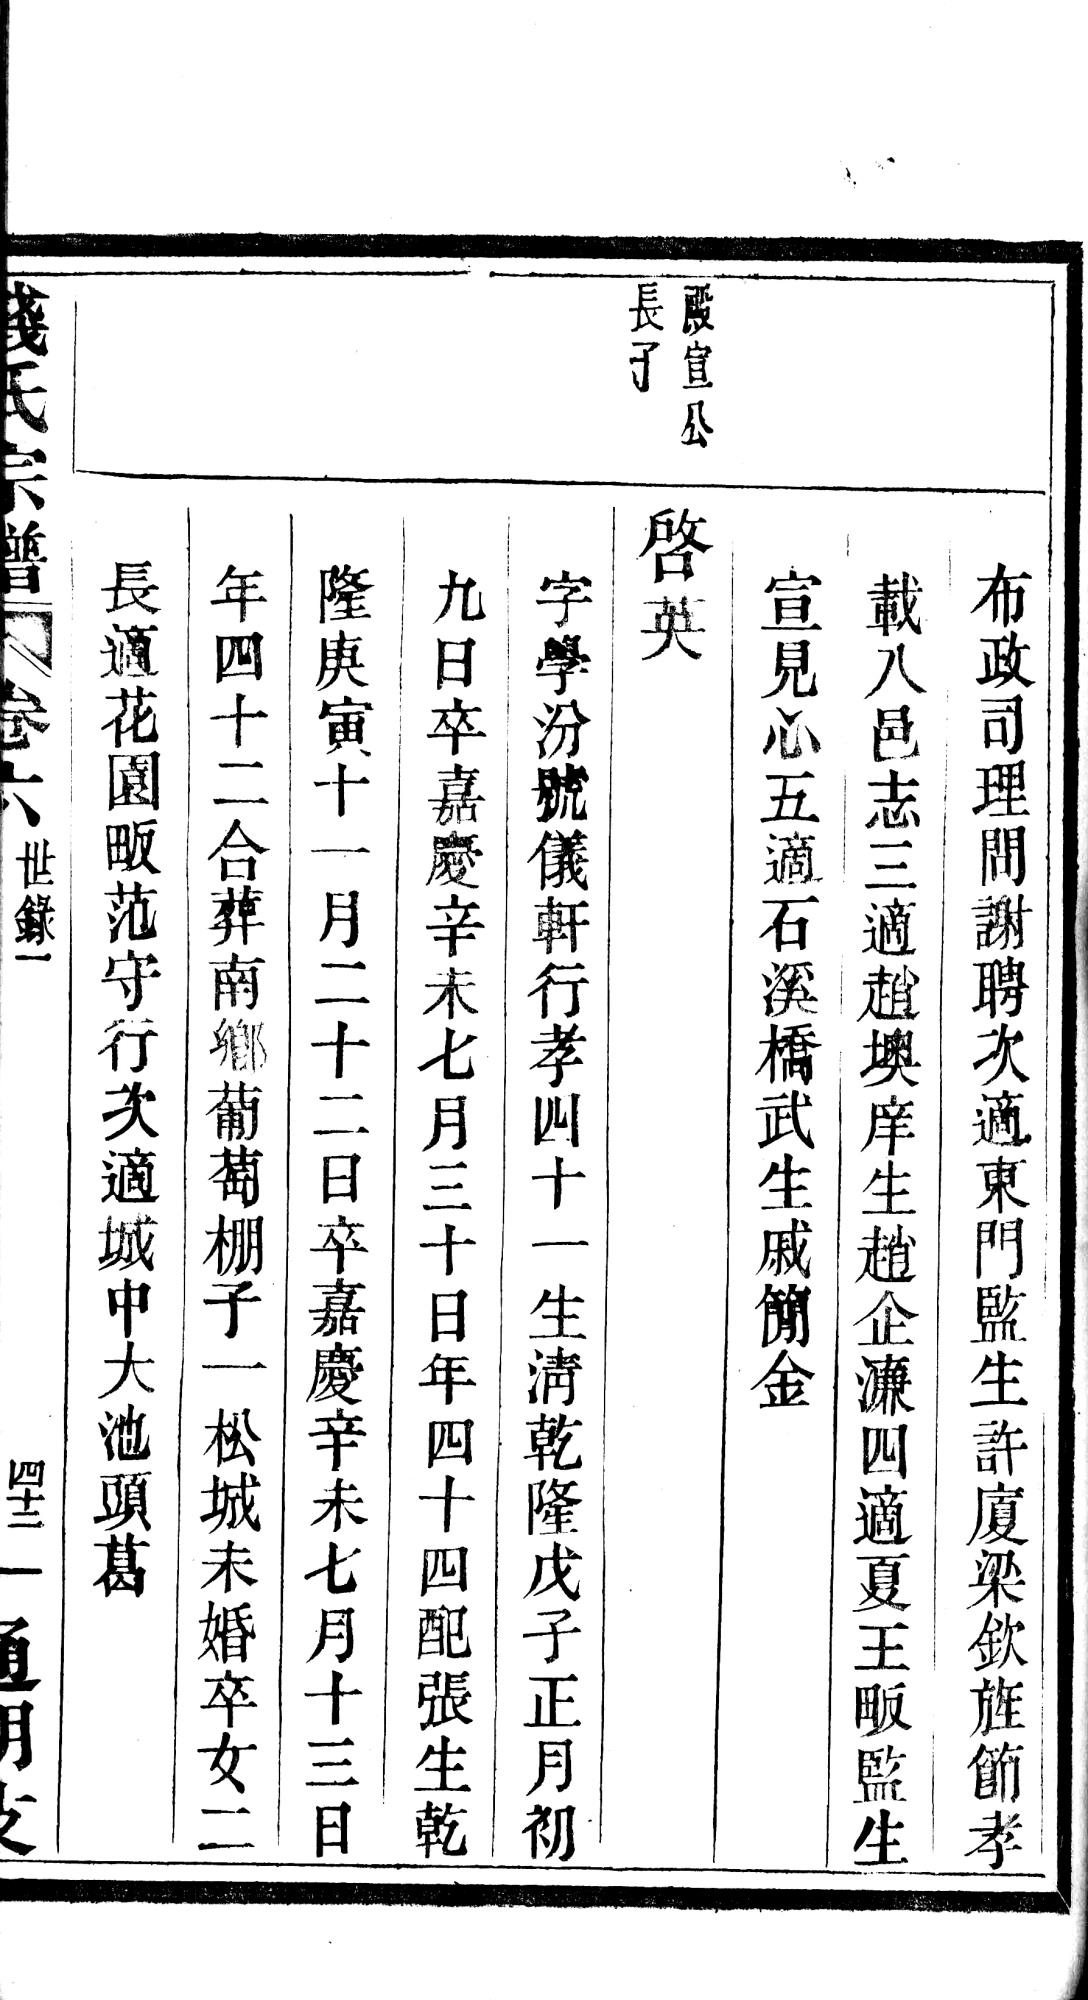 布政司理問謝聘次適東門監生許廈梁欽旌節孝
載八邑志三適趙墺庠生趙企濂四適夏王畈監生
宣見心五適石溪橋武生戚簡金
殿宣公
長子
啓英
字學汾號儀軒行孝四十一生清乾隆戊子正月初
九日卒嘉慶辛未七月三十日年四十四配張生乾
隆庚寅十一月二十二日卒嘉慶辛未七月十三日
年四十二合葬南鄉葡萄棚子一松城未婚卒女二
長適花園畈范守行次適城中大池頭葛
錢氏宗譜
卷六
世錄一
四十二
通明支